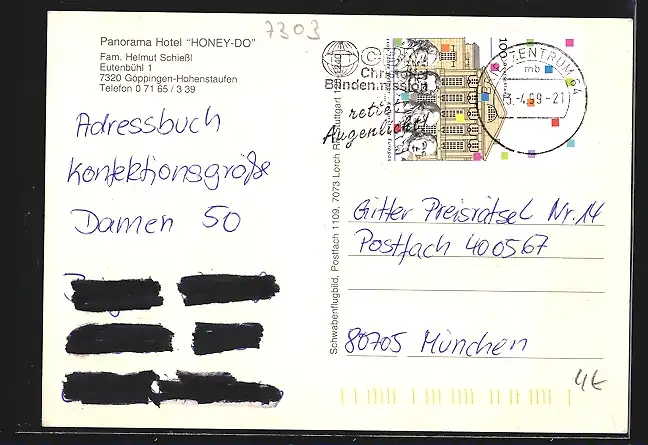 7303
Panorama Hotel "HONEY-DO"
Fam. Helmut Schießl
Eutenbühl 1
7320 Göppingen-Hohenstaufen
Telefon 0 71 65 / 3 39
Adressbuch
Konfektionsgröße
Damen 50
Christoffel
Blindenmission
rettet
Augenlicht!
100
ZENTRUM 64
mb
-4.99-21
Schwabenflugbild, Postfach 1109, 7073 Lorch
Gitter Preisrätsel Nr. 14
Postfach 400567
80705 München
4t